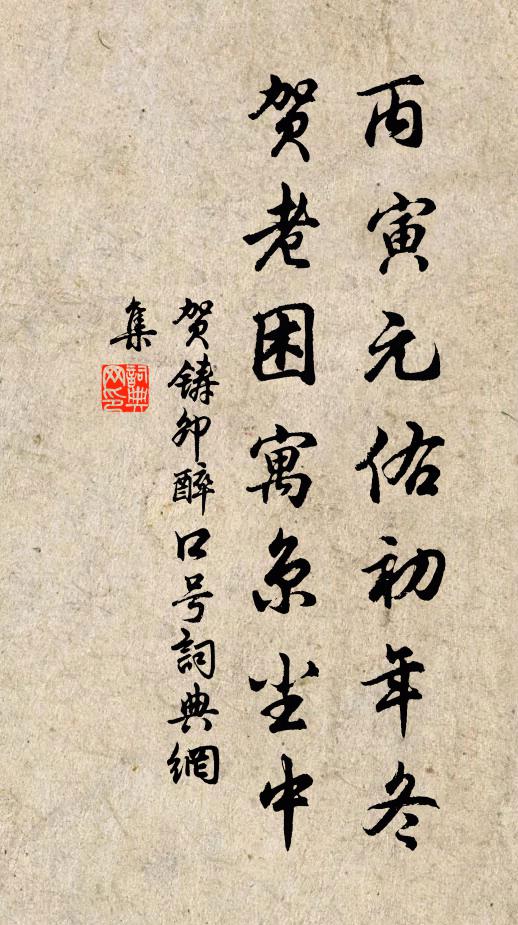 丙寅元佑初年冬
贺老困寓京尘中
贺鑄卯醉口号詞典網
集
詞典
网印